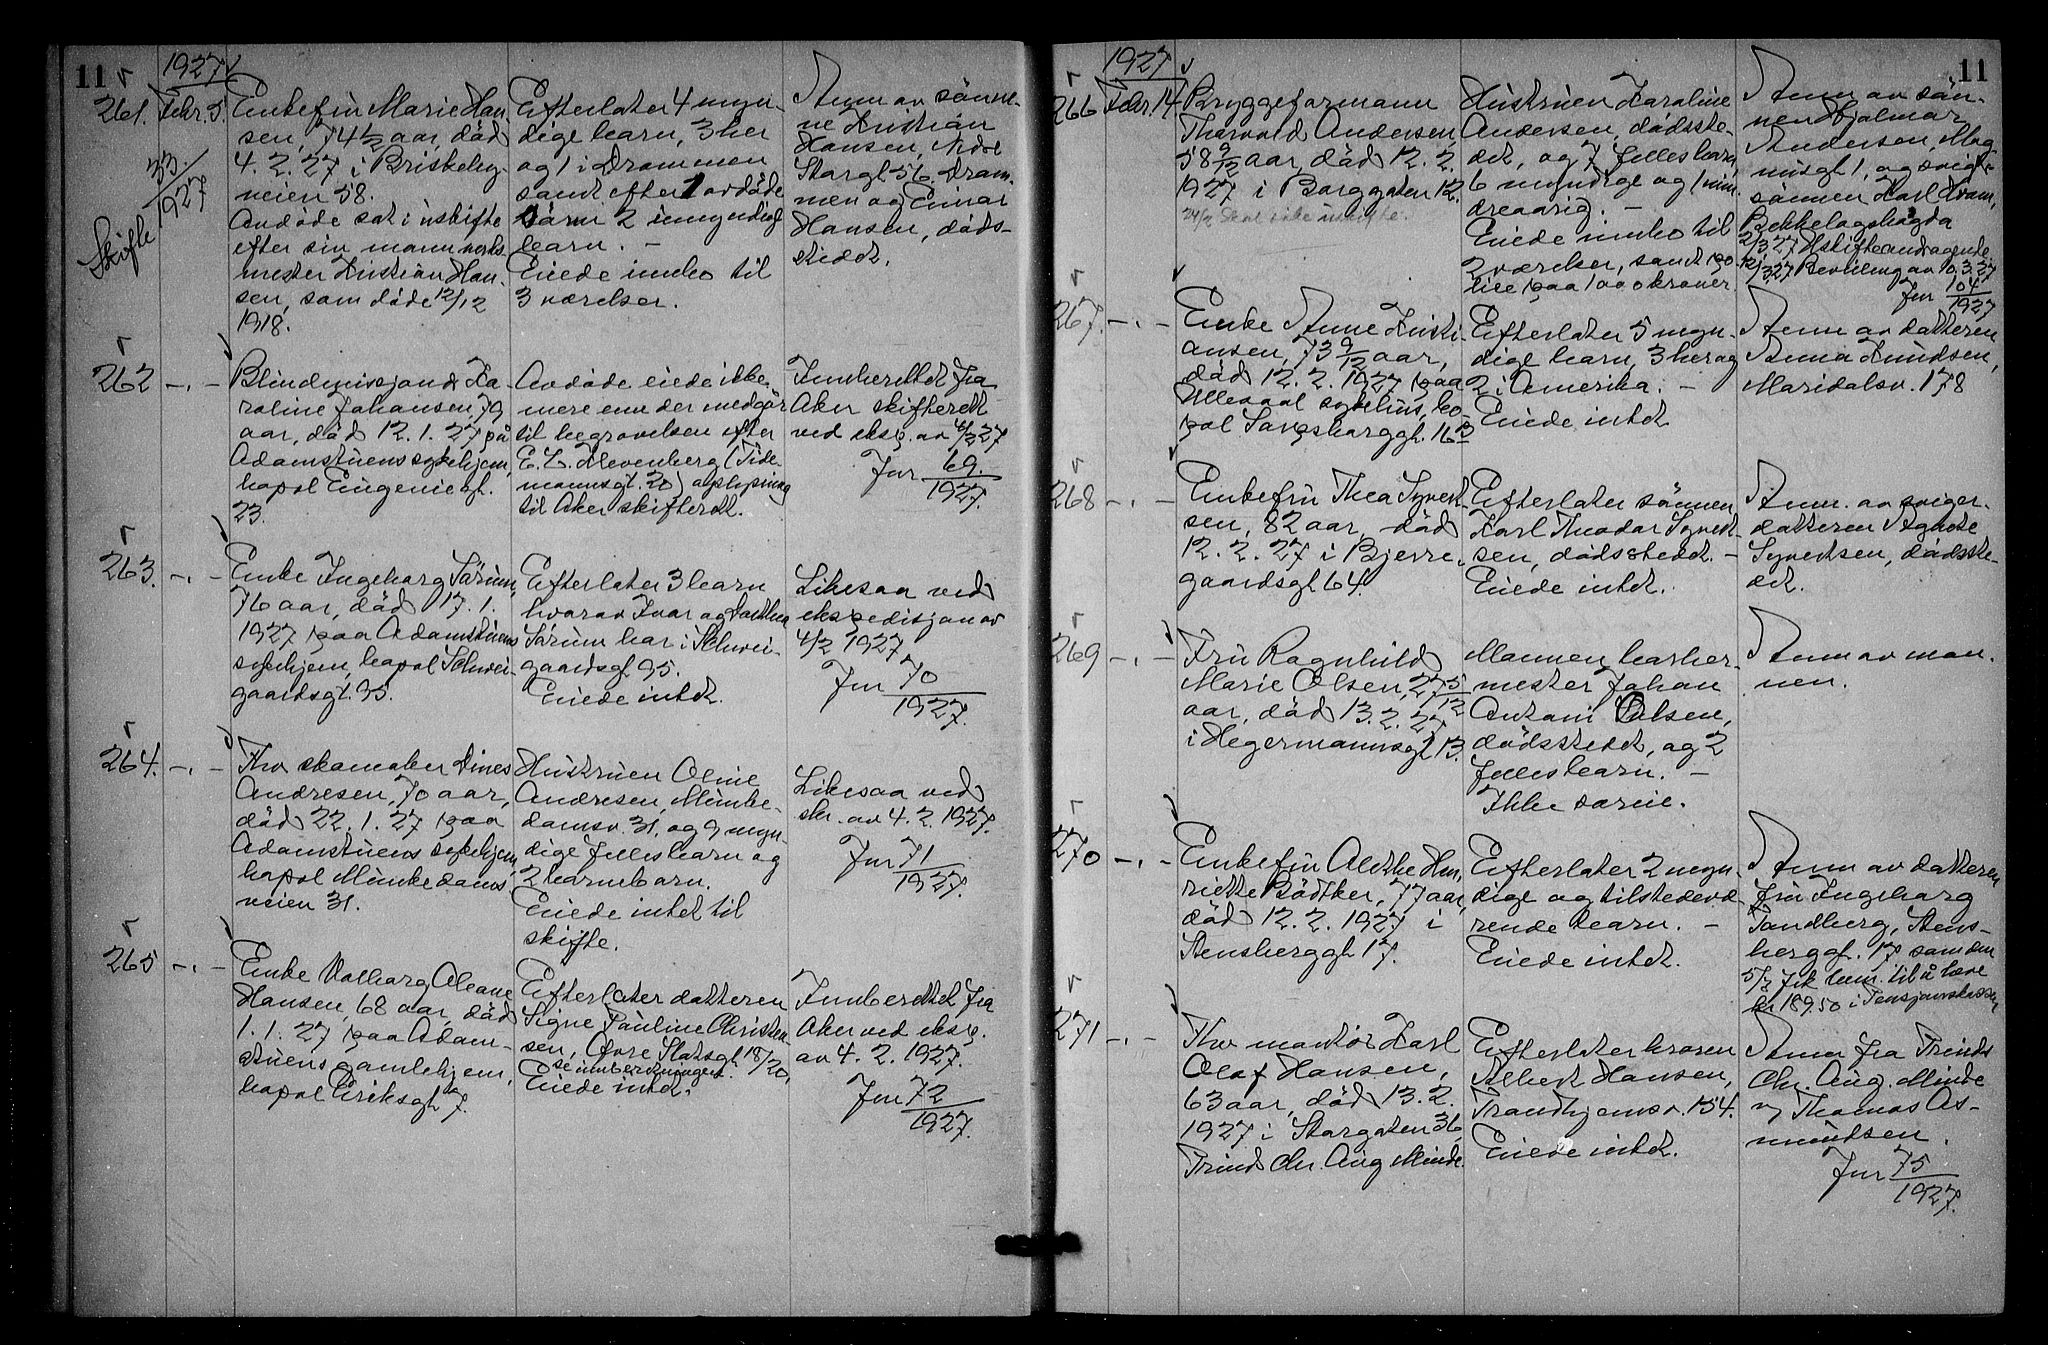 11
1927
261. Febr. 5
Skifte 33/1927
Enkefru Marie Han-
sen, 74 1/2 aar, död
4. 2. 27 i Briskeby-
veien 58.
Avdöde sat i uskifte
efter sin mann verks-
mester Kristian Han-
sen, som döde 12/12
1918.
Efterlater 4 myn-
dige barn, 3 her
og 1 i Drammen
samt efter 1 avdöde
barn 2 umyndige
barn. -
Eiede innbo til
3 værelser.
Anm av sönne-
ne Kristian
Hansen, Nedre
Storgt 56 Dram-
men og Einar
Hansen, döds-
stedet.
262 -.-
Blindepensjonær Ka-
roline Johansen, 79
aar, död 12. 1. 27 på
Adamstuens sykehjem,
bopæl Eugeniegt.
23.
Avdöde eiede ikke
mere enn der medgår
til begravelsen efter
E. L. Klevenberg (Tide-
mannsgt. 20) oplysning
til Aker skifterett.
Innberettet fra
Aker skifterett
ved eksp. av 4/2 27
Jnr 69.
1927.
263. -.-
Enke Ingeborg Sörum,
76 aar, död 17. 1.
1927 paa Adamstuens
sykehjem, bopæl Schwei-
gaardsgt. 95.
Efterlater 3 barn
hvorav Ivar og Dorthea
Sörum bor i Schwei-
gaardsgt 95.
Eiede intet.
Likesaa ved
ekspedisjon av
4/2 1927
Jnr 70
1927.
264. -.-
Fhv skomaker Dines
Andresen, 70 aar,
död 22. 1. 27 paa
Adamstuens sykehjem,
bopæl Munkedams-
veien 31.
Hustruen Oline
Andresen, Munke-
damsv. 31, og 9 myn-
dige fellesbarn og
2 barnebarn.
Eiede intet til
skifte.
Likesaa ved
skr. av 4. 2. 1927.
Jnr 71
1927.
265 -.-
Enke Valborg Oleane
Hansen, 68 aar, död
1. 1. 27 paa Adam-
stuens gamlehjem,
bopæl Eriksgt 7.
Efterlater datteren
Signe Pauline Christen-
sen, Övre Slotsgt 18/20,
se innberetningen.
Eiede intet.
Innberettet fra
Aker ved eksp.
av 4. 2. 1927.
Jnr 72
1927.
11
1927
266 Febr. 14
Bryggeformann
Thorvald Andersen,
58 9/12 aar, död 12. 2.
1927 i Borggaten 12.
24/2 Skal ikke uskifte.
Hustruen Karoline
Andersen, dödsste-
det, og 7 fellesbarn,
6 myndige og 1 min-
dreaarig. -
Eiede innbo til
2 værelser, samt po-
lise paa 1000 kroner
Anm av sön-
nen Hjalmar
Andersen, Mag-
nusgt 1, og svige-
sönnen Karl Kram,
Bekkelagshögda
2/3 27 Uskifteandragende
12/3 27 Bevilling av 10. 3. 27
Jnr 104
1927
267. -.-
Enke Anne Kristi-
ansen, 73 9/12 aar,
död 12. 2. 1927 paa
Ullevaal sykehus, bo-
pæl Sarpsborggt. 16 B
Efterlater 5 myn-
dige barn, 3 her og
2 i Amerika. -
Eiede intet
Anm av datteren
Anna Knudsen,
Maridalsv. 178
268 -.-
Enkefru Thea Syvert-
sen, 82 aar, död
12. 2. 27 i Bjerre-
gaardsgt 64.
Efterlater sönnen
Karl Theodor Syvert-
sen, dödsstedet. -
Eiede intet.
Anm. av sviger-
datteren Agnete
Syvertsen, dödsste-
det.
269 -.-
Fru Ragnhild
Marie Olsen, 27 5/12
aar, död 13. 2. 27
i Hegermannsgt 13.
Mannen barber-
mester Johan
Antoni Olsen,
dödsstedet, og 2
fellesbarn. -
Ikke særeie.
Anm av man-
nen.
270 -.-
Enkefru Alethe Hen-
riette Bödtker, 77 aar,
död 12. 2. 1927 i
Stensberggt 17.
Efterlater 2 myn-
dige og tilstedevæ-
rende barn. -
Eiede intet.
Anm av datteren
fru Ingeborg
Sandberg, Stens-
berggt. 17 som den
5/3 fik bem. til å heve
kr 189.50 i Pensjonskassen
271 -.-
Fhv montör Karl
Olaf Hansen,
63 aar, död 13. 2.
1927 i Storgaten 36,
Trinds Chr. Aug Minde
Efterlater broren
Albert Hansen,
Trondhjemsv. 154.
Eiede intet.
Anm fra Trinds
Chr. Aug. Minde
v/ Thomas As-
mundsen.
Jnr 75
1927.